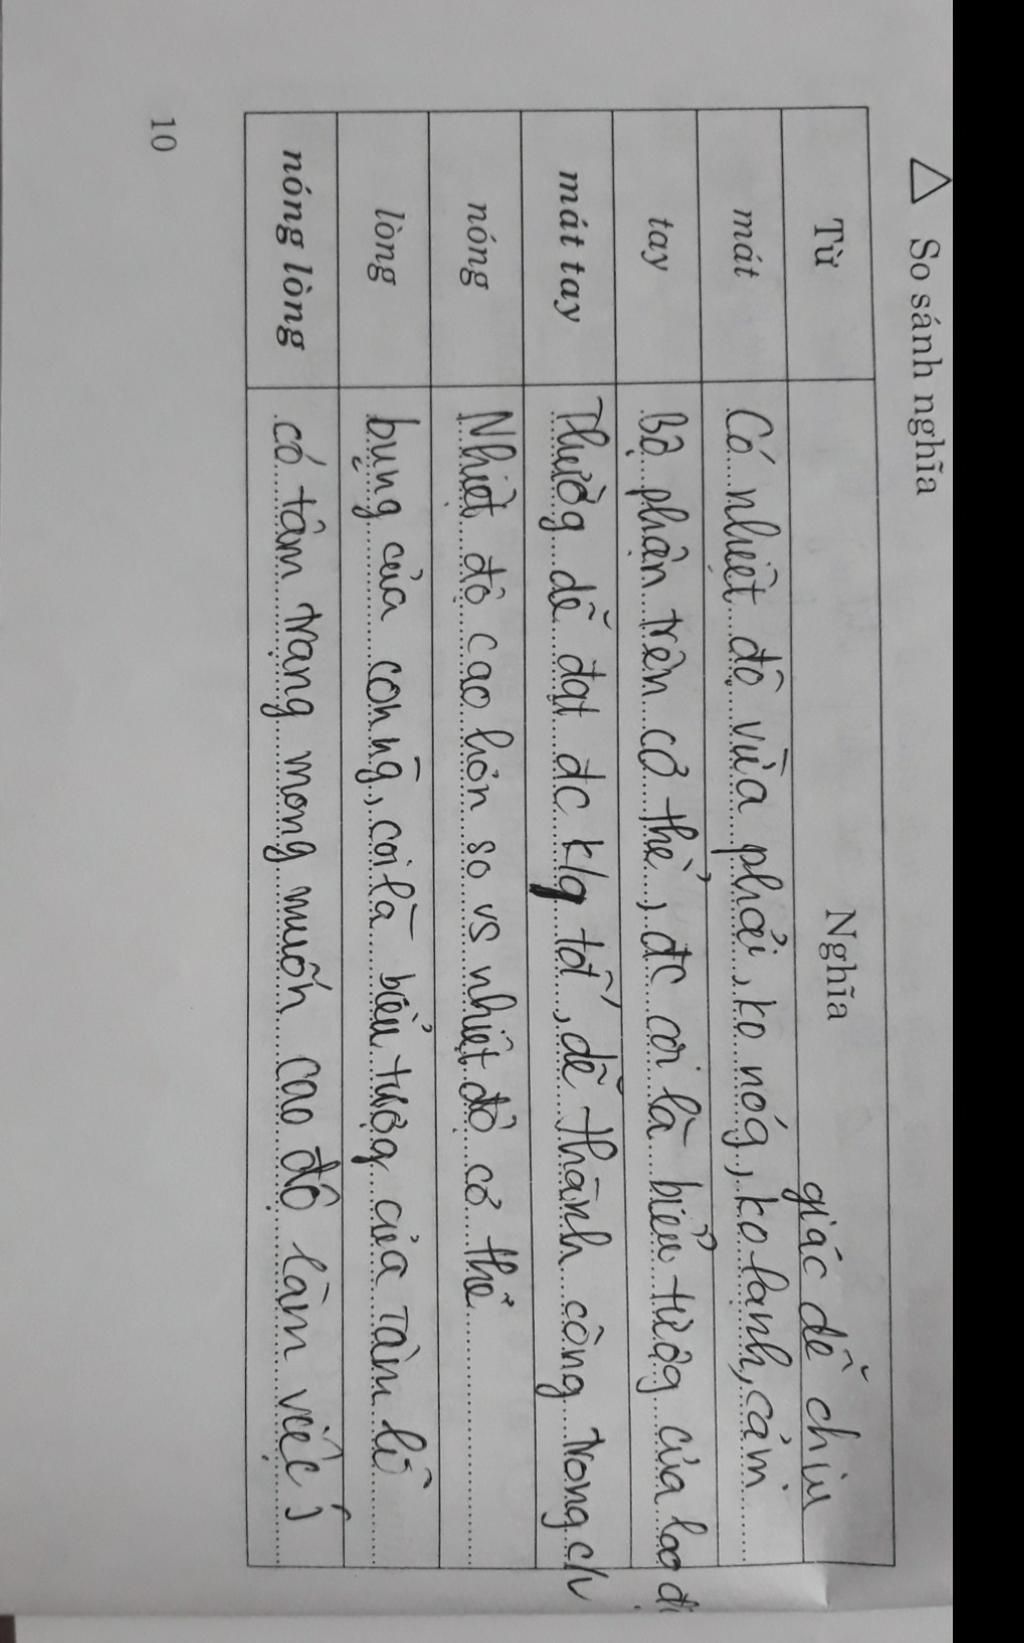 △ So sánh nghĩa
Từ Nghĩa
giác dễ chịu
mát Có nhiệt độ vừa phải, ko nóg, ko lạnh, cảm
tay Bộ phận trên cơ thể, đc coi là biểu tượg của lao
mát tay Thườg dễ đạt đc k/q tốt, dễ thành công trong
nóng Nhiệt độ cao hơn so vs nhiệt độ cơ thể
lòng bụng của con ng̃, coi là biểu tượg của tâm lí
nóng lòng có tâm trạng mong muốn cao độ làm việc
10